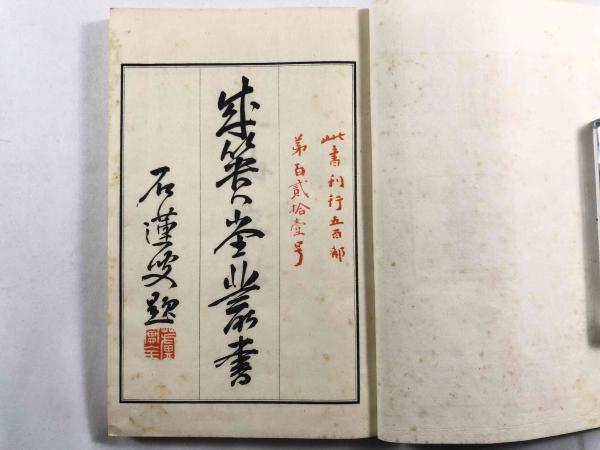 此書刊行五百部
第百貳拾壹号
成簣堂叢書
石蓮叟題